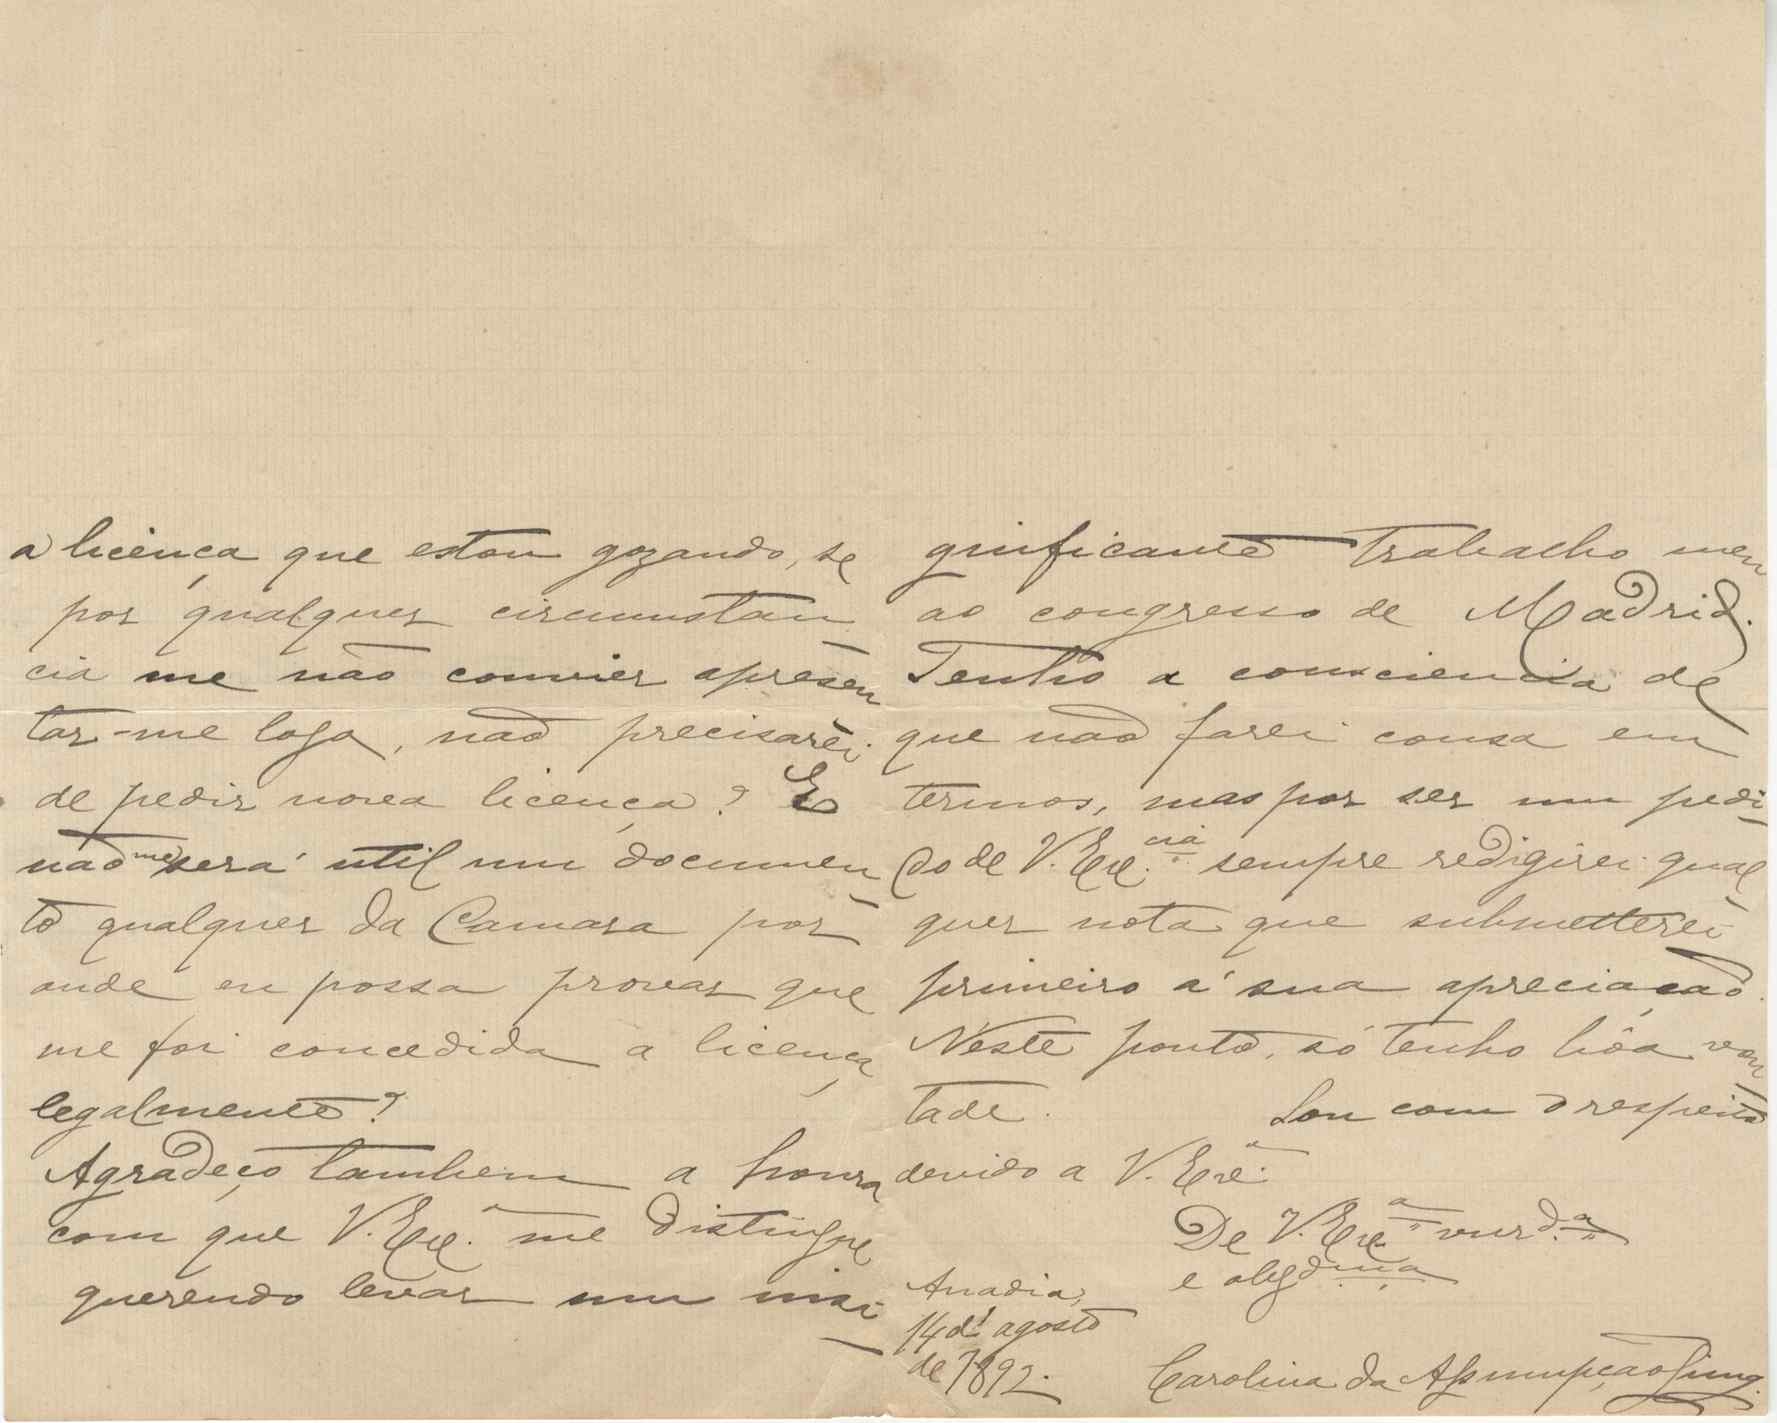 a licença que estou gozando, se
por qualquer circumstan
cia me não convier apresen
tar-me logo, não precisarei
de pedir nova licença? E
não me será util um documen
to qualquer da Camara por
onde eu possa provar que
me foi concedida a licença
legalmente?
Agradeço tambem a honra
com que V. Exc.ª me distingue
querendo levar um insi-
gnificante trabalho meu
ao congresso de Madrid.
Tenho a consciencia de
que não farei cousa em
termos, mas por ser um pedi-
do de V. Exc.cia sempre redigirei qual
quer nota que submetterei
primeiro á sua apreciação.
Néste ponto, só tenho bôa von
tade. Sou com o respeito
devido a V. Exc.ª
De V. Exc.ª vnrd.ª
e obgd.ma
Anadia,
14 d'agosto
de 1892.
Carolina da Assumpção Lima